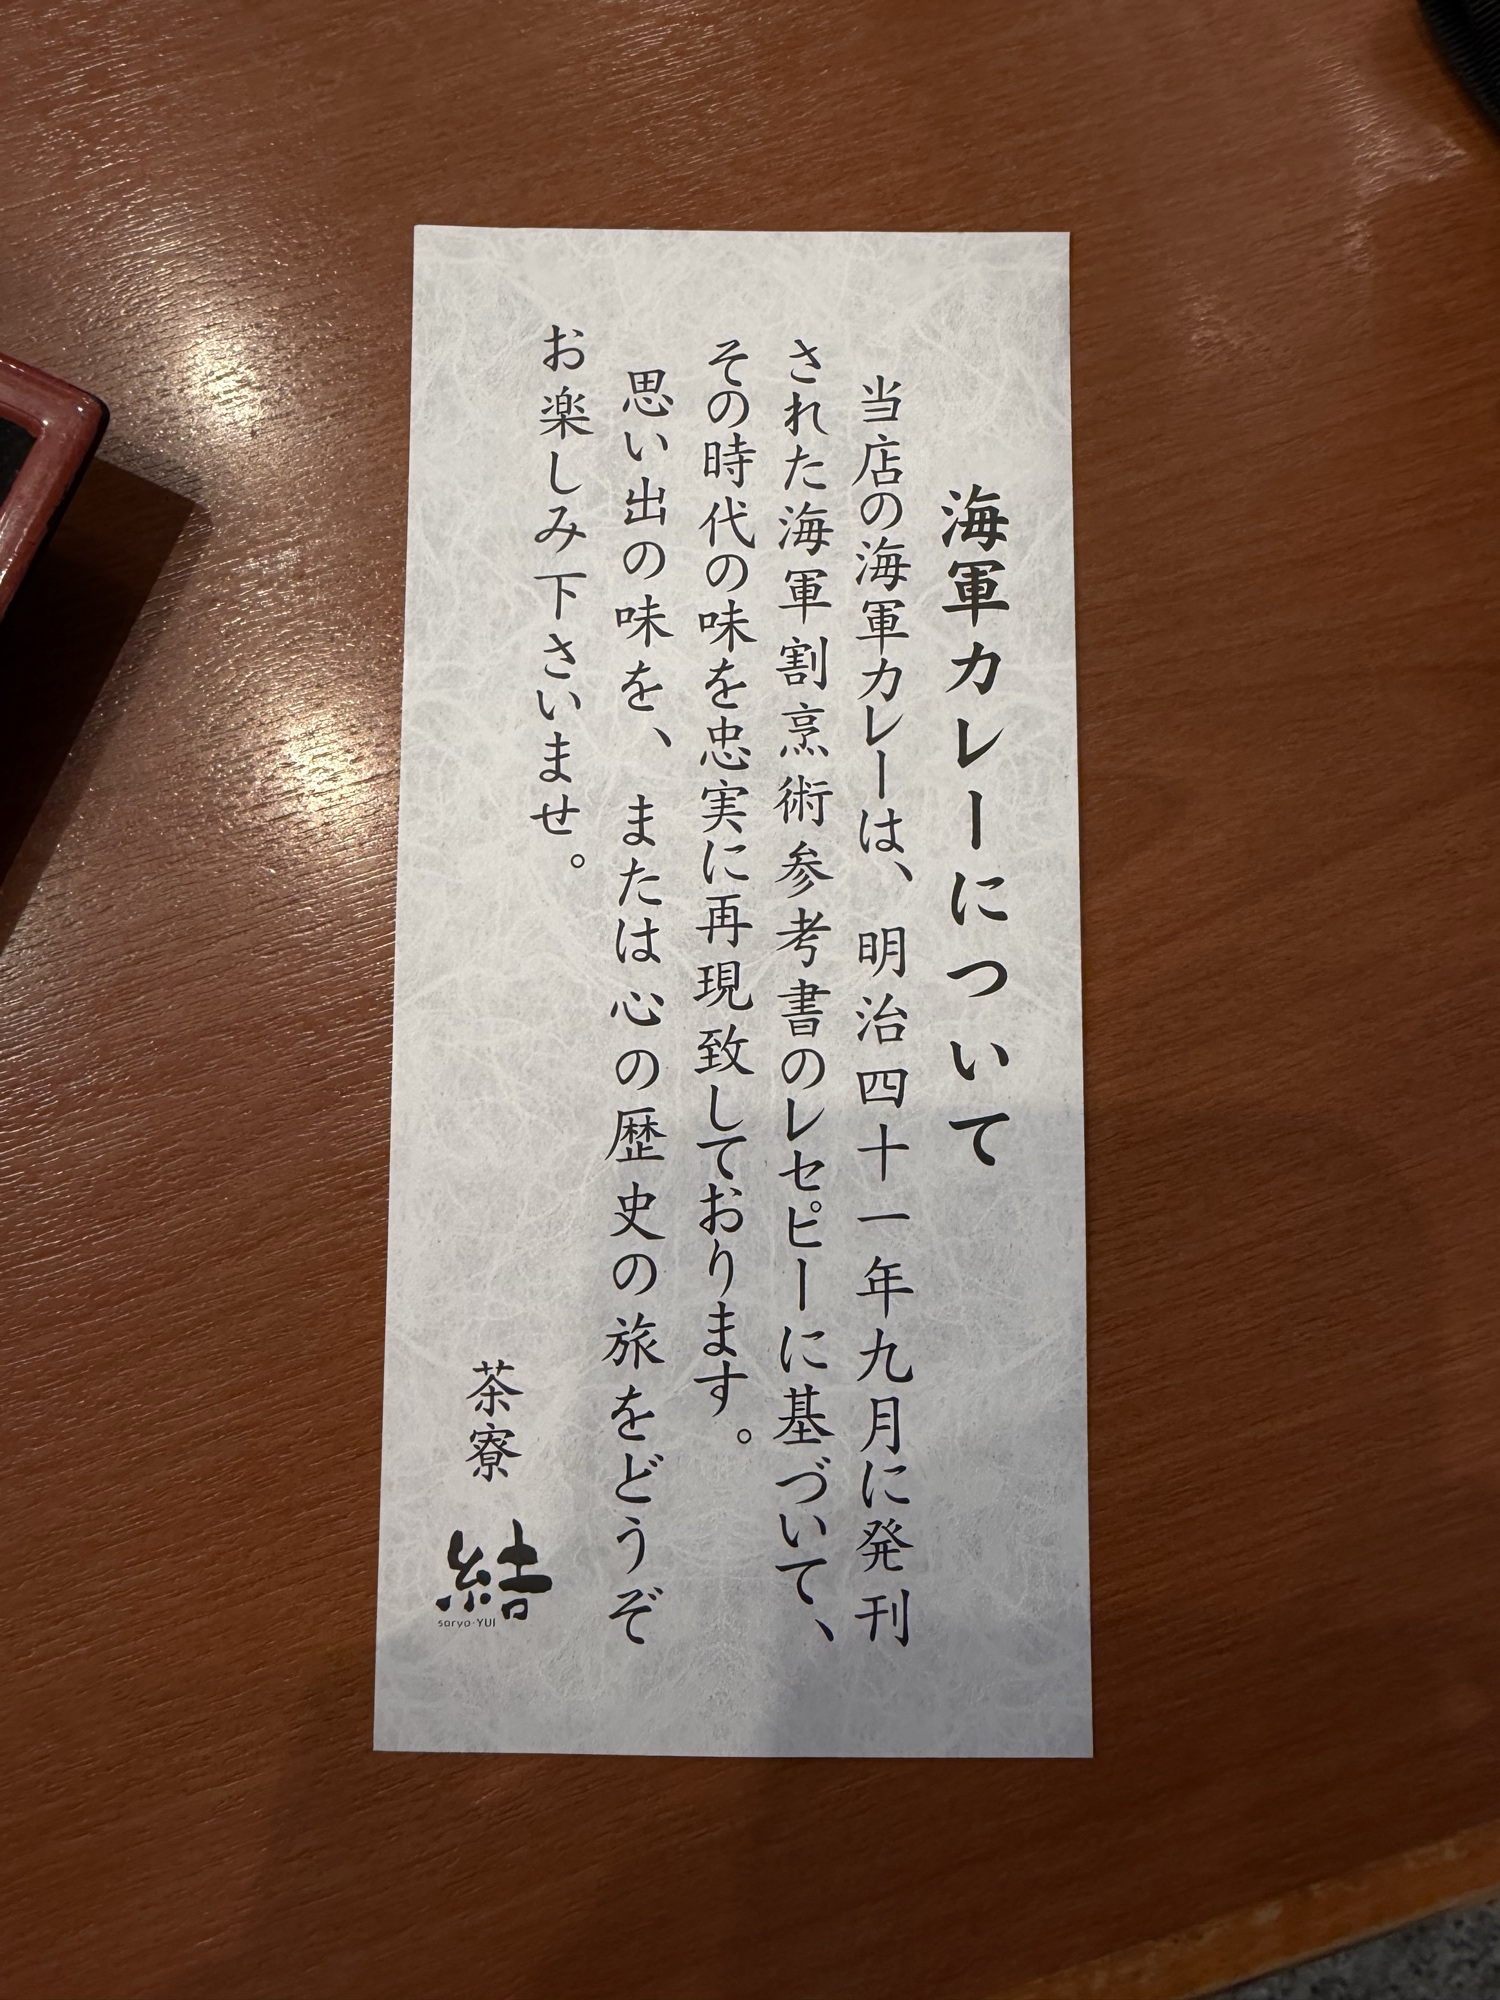 海軍カレーについて
当店の海軍カレーは、明治四十一年九月に発刊
された海軍割烹術参考書のレセピーに基づいて、
その時代の味を忠実に再現致しております。
思い出の味を、または心の歴史の旅をどうぞ
お楽しみ下さいませ。
茶寮
結
saryo-YUI